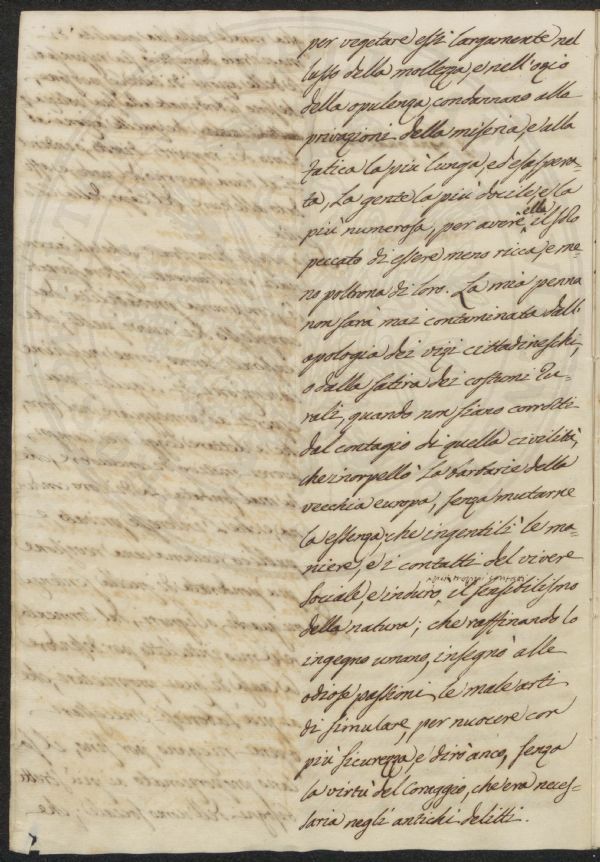 per vegetare essi largamente nel
lusso della mollezza, e nell'ozio
della opulenza, condannano alle
privazioni della miseria, e alla
fatica la più lunga, ed esaspera-
ta, la gente la più docile, e la
più numerosa, per avere ella il solo
peccato di essere meno ricca, e me-
no poltrona di loro. La mia penna
non sarà mai contaminata dall'
apologia dei vizj cittadineschi,
o dalla satira dei costumi Ru-
rali, quando non siano corrotti
dal contagio di quella civiltà,
che inorpellò la barbarie della
vecchia europa, senza mutarne
la essenza, che ingentilì le ma-
niere, e i contatti del vivere
Sociale, e indurò, il sensibilismo
della natura; che raffinando lo
ingegno umano, insegnò alle
odiose passioni le male arti
di simulare, per nuocere con
più sicurezza, e dirò anco, senza
la virtù del Coraggio, che era neces-
saria negli antichi delitti.